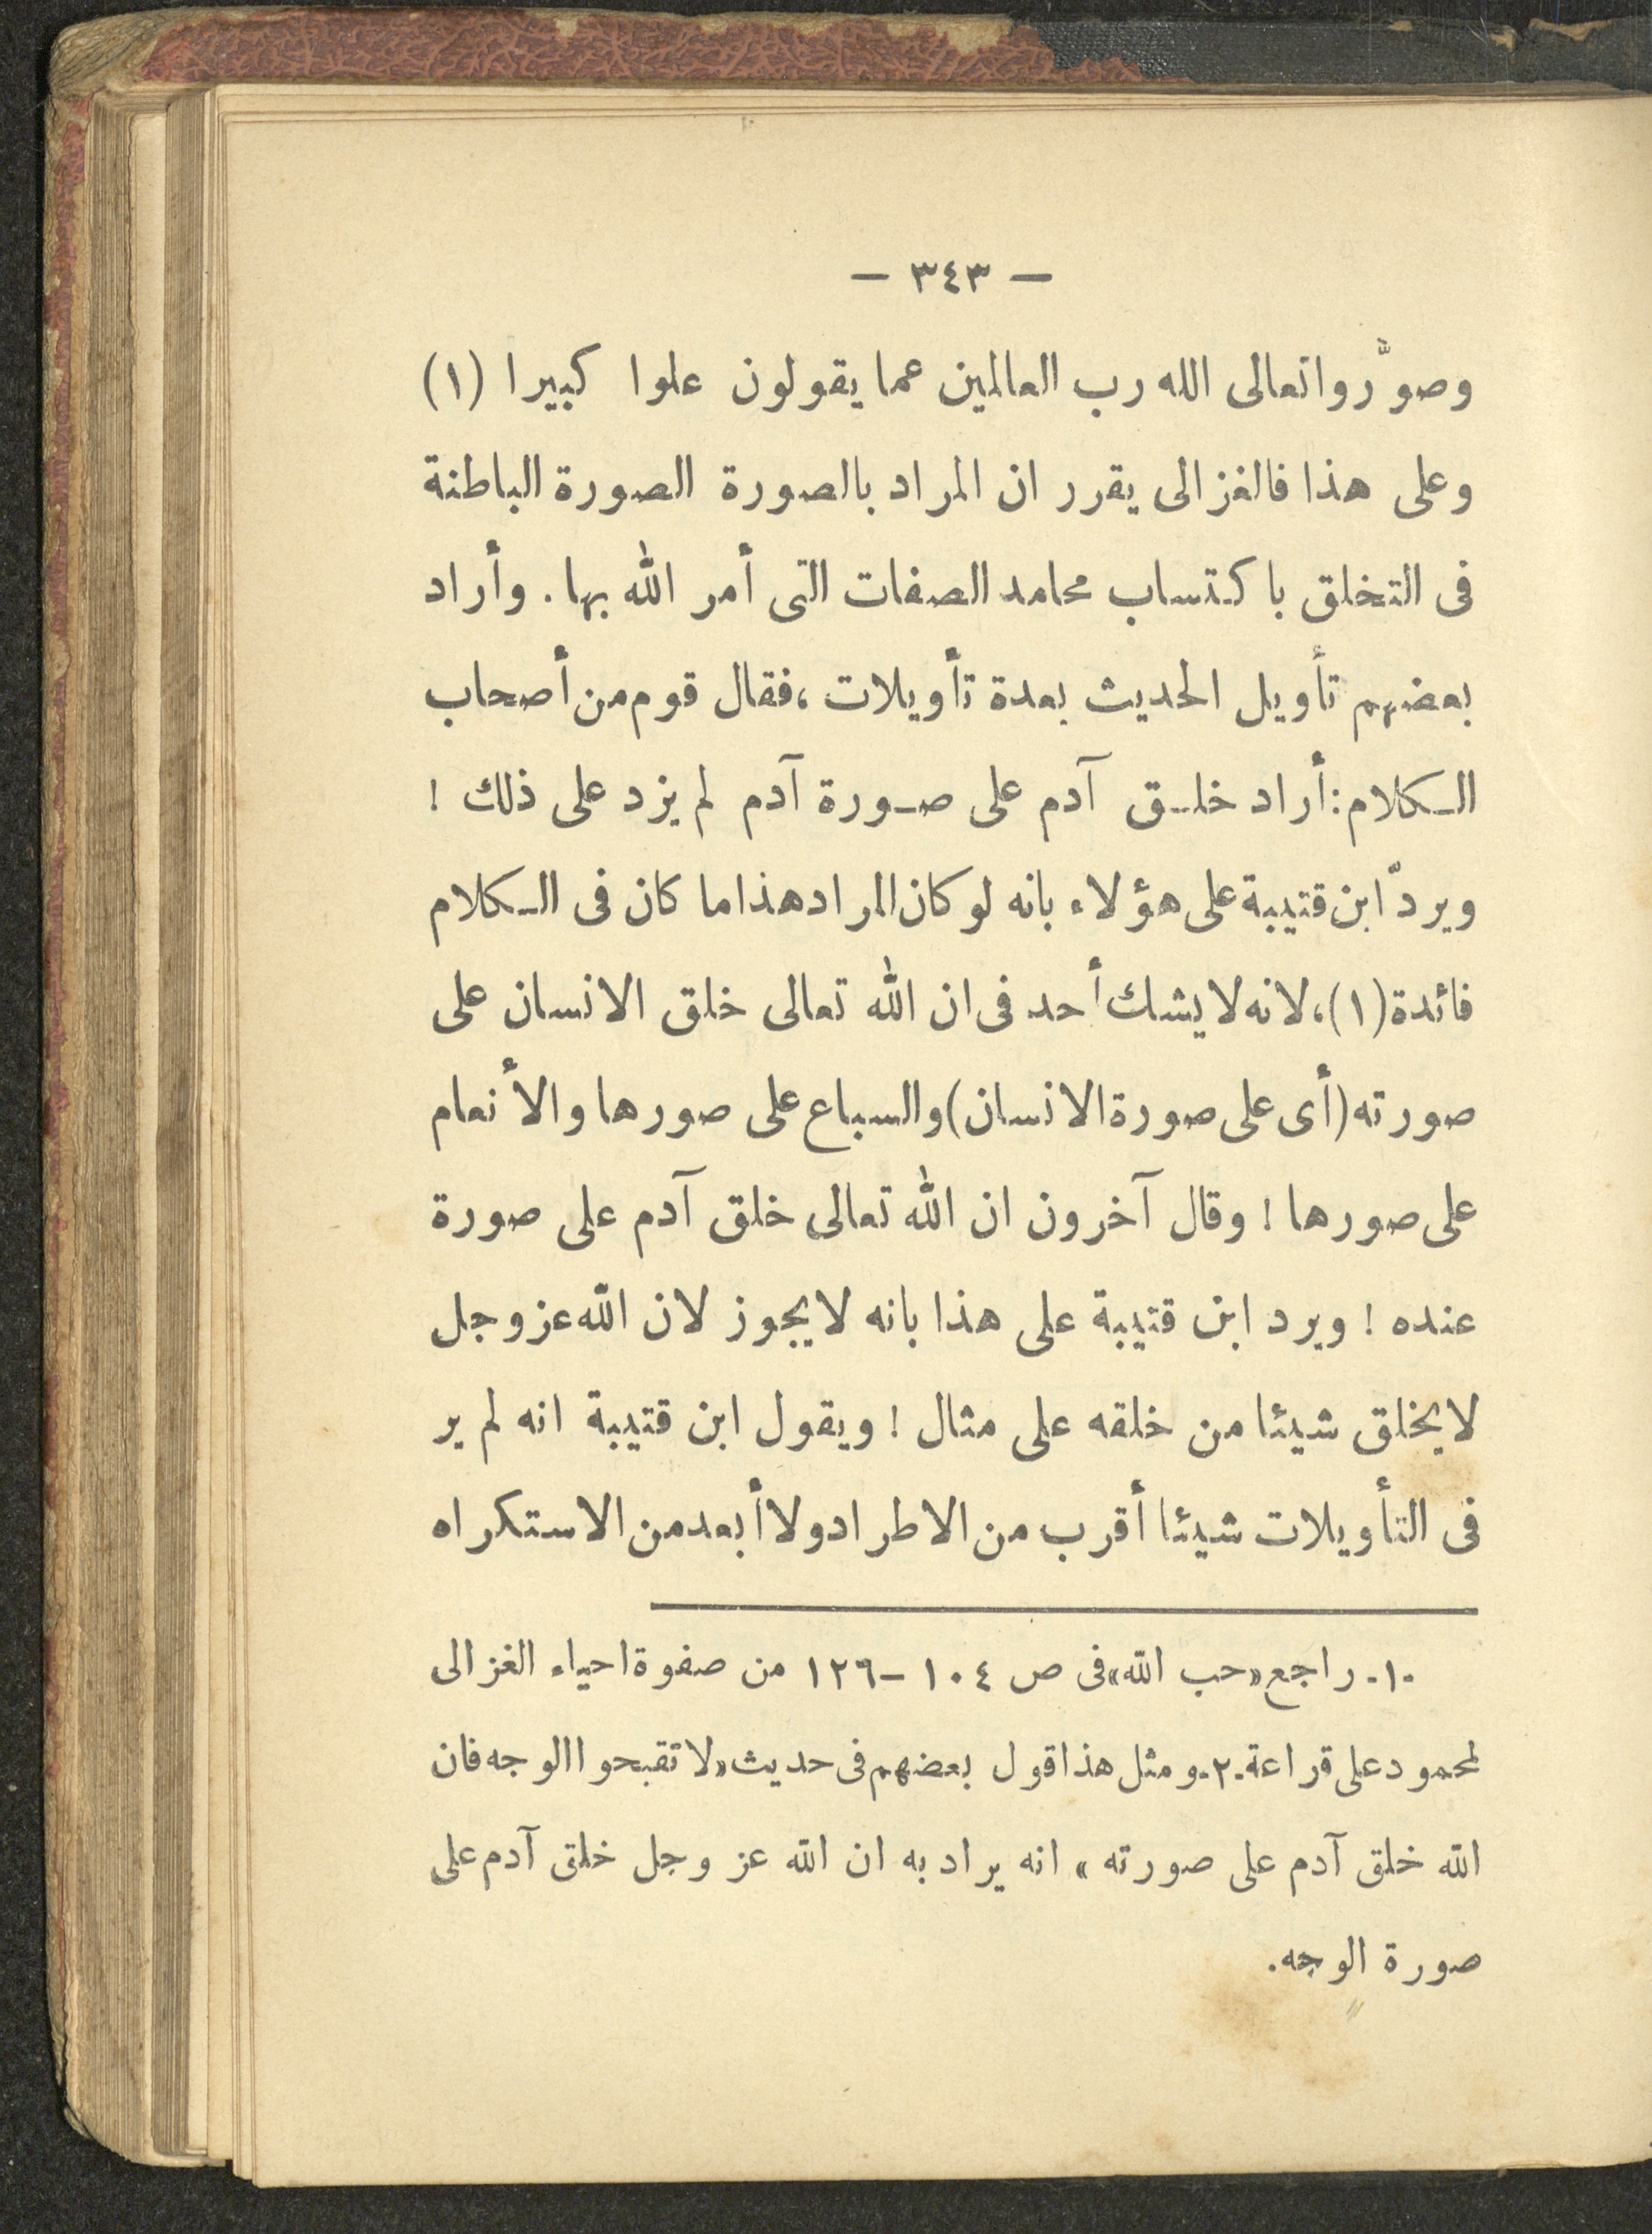 — ٣٤٣ —
وصوَّروا تعالى الله رب العالمين عما يقولون علوا كبيرا (١)
وعلى هذا فالغزالى يقرر ان المراد بالصورة الصورة الباطنة
فى التخلق باكتساب محامد الصفات التى أمر الله بها. وأراد
بعضهم تأويل الحديث بعدة تأويلات ،فقال قوم من أصحاب
الكلام: أراد خلق آدم على صورة آدم لم يزد على ذلك !
ويردّ ابن قتيبة على هؤلاء بانه لو كان المراد هذا ما كان فى الكلام
فائدة (١)، لانه لا يشك أحد فى ان الله تعالى خلق الانسان على
صورته (أى على صورة الانسان) والسباع على صورها والأنعام
على صورها ! وقال آخرون ان الله تعالى خلق آدم على صورة
عنده ! ويرد ابن قتيبة على هذا بانه لا يجوز لان الله عز وجل
لا يخلق شيئا من خلقه على مثال ! ويقول ابن قتيبة انه لم ير
فى التأويلات شيئا أقرب من الاطراد ولا أبعد من الاستكراه
-١- راجع «حب الله» فى ص ١٠٤ – ١٢٦ من صفوة احياء الغزالى
لمحمود على قراعة -٢- ومثل هذا قول بعضهم فى حديث «لا تقبحوا الوجه فان
الله خلق آدم على صورته » انه يراد به ان الله عز وجل خلق آدم على
صورة الوجه.